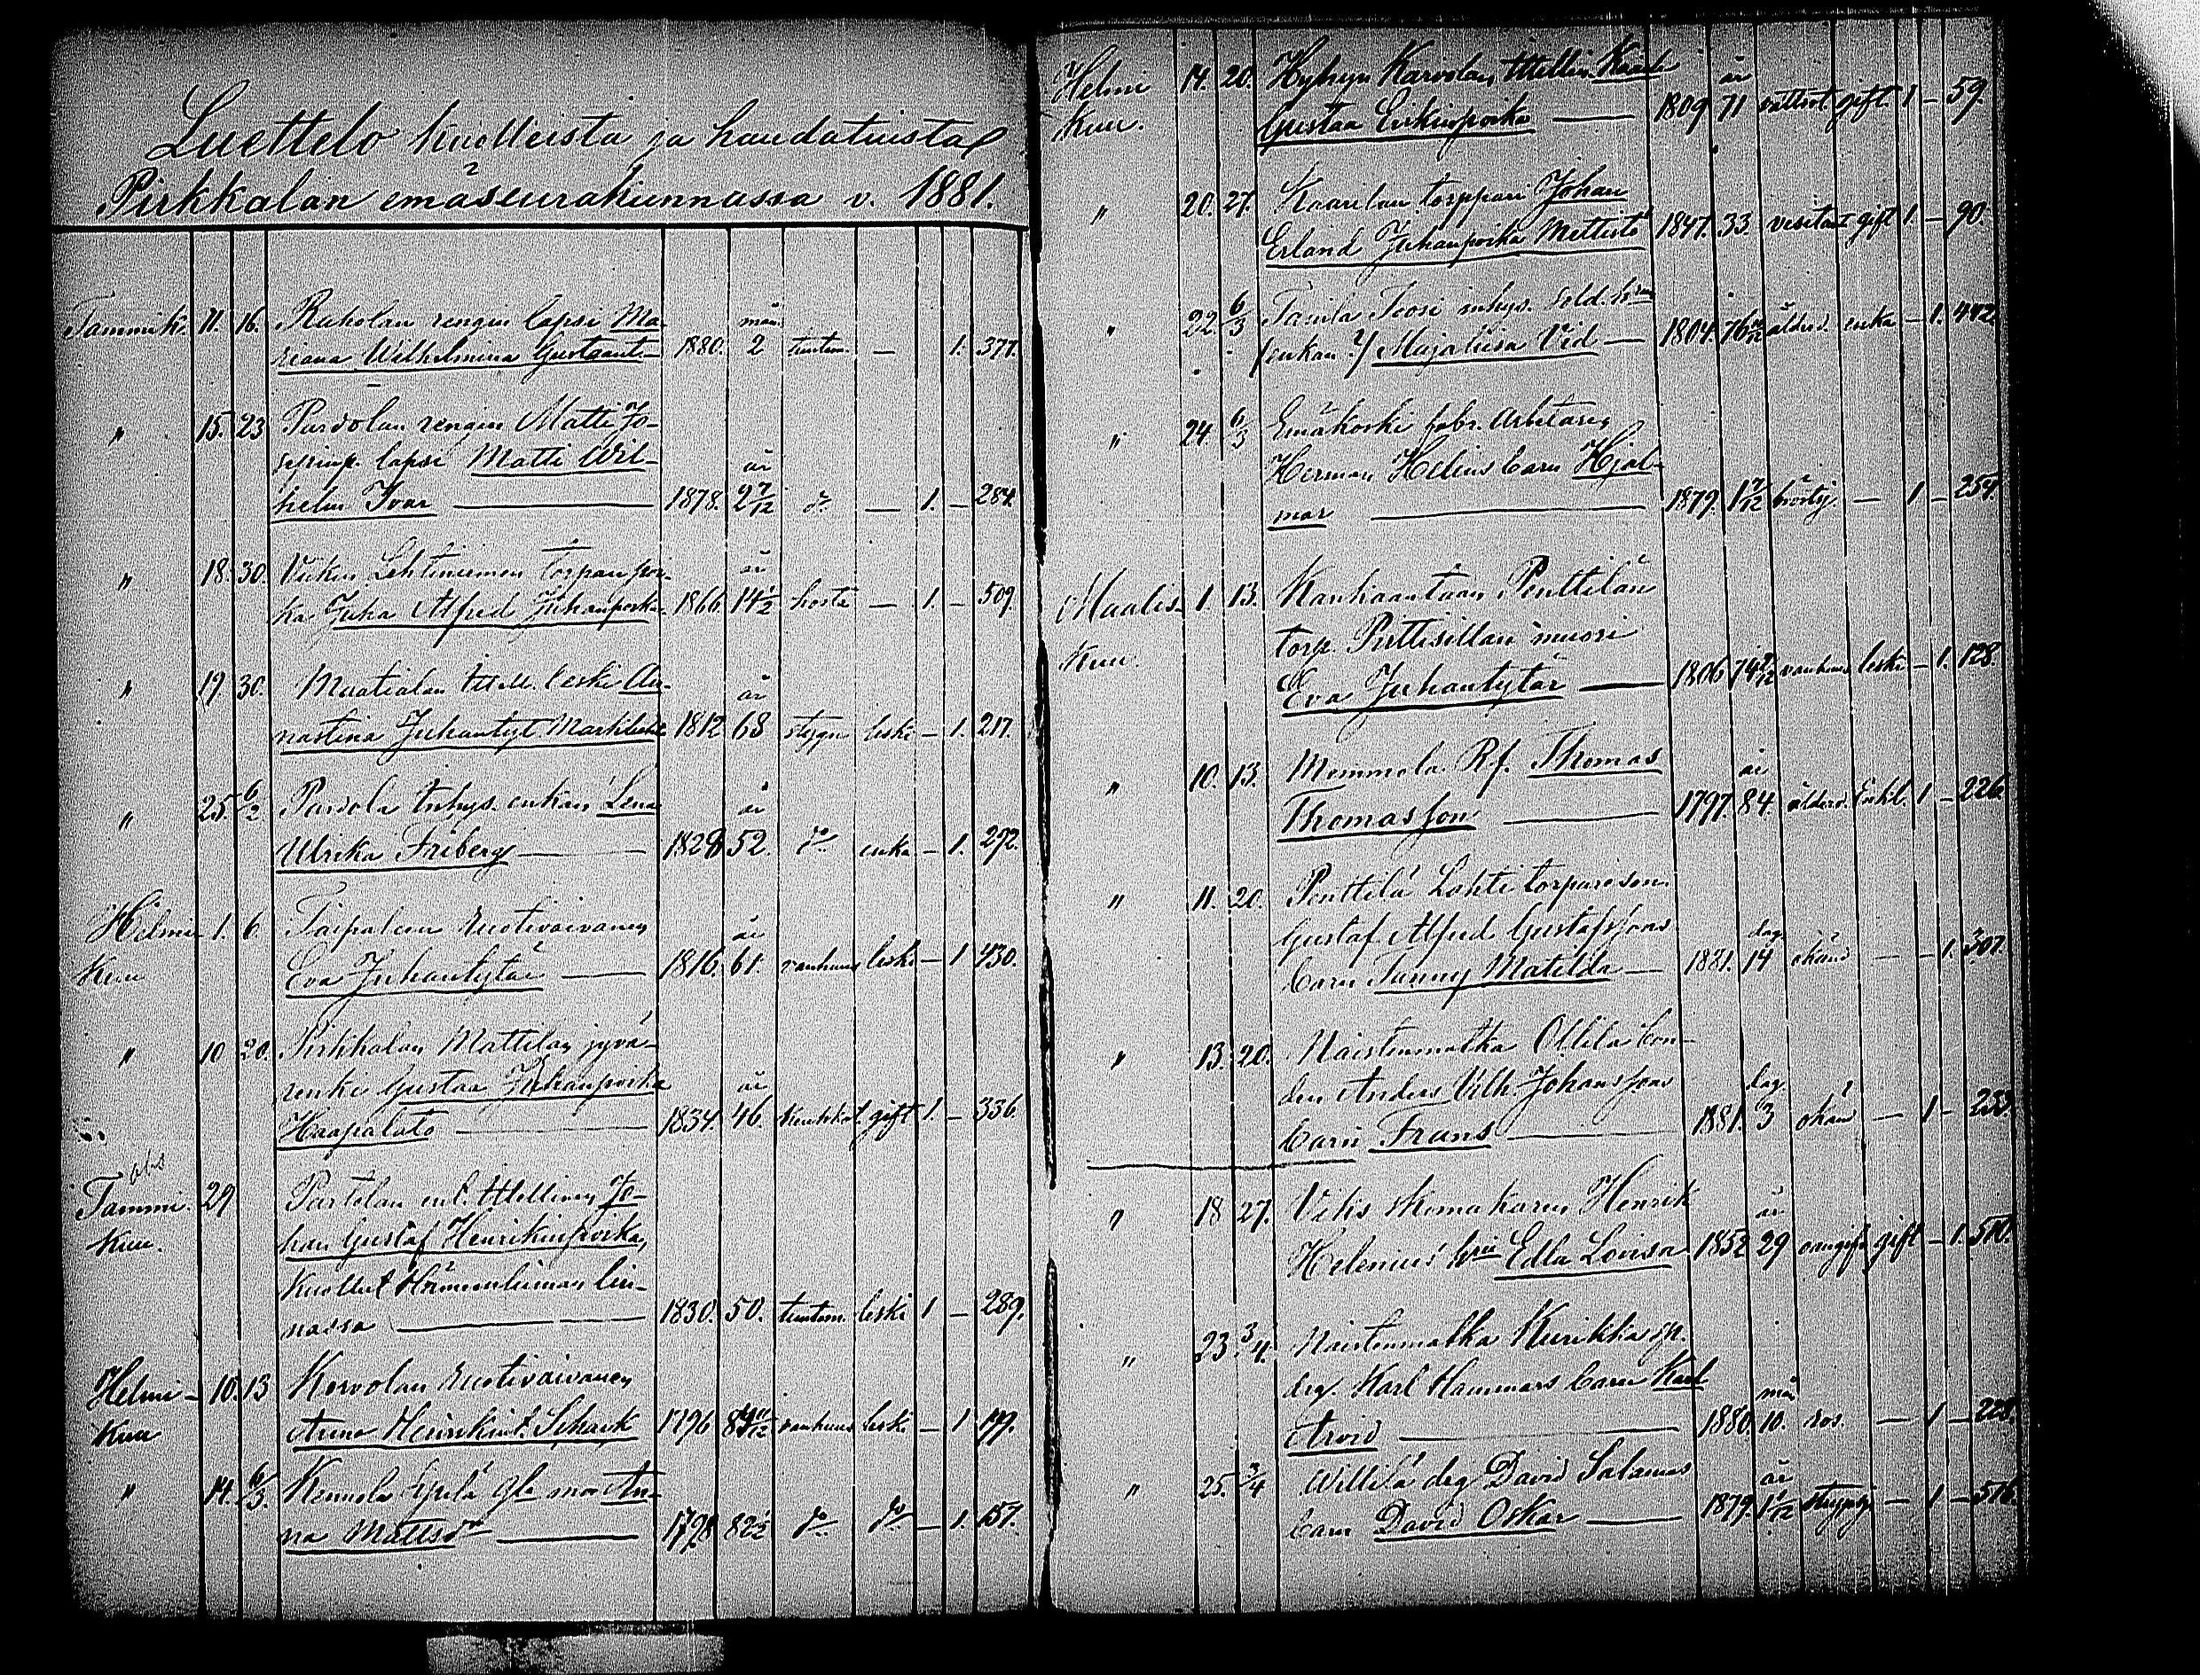 Luettelo kuolleista ja haudatuista
Pirkkalan emäseurakunnassa v. 1881.
Tammik. 11. 16. Rukolan rengin lapsi Ma-
riana Wilhelmina Gustaant. 1880. 2 mån tuntem. — 1. 377.
" 15. 23 Parvolan rengin Matti Jo-
sepinp. lapsi Matti Wil-
helm Ivar — 1878. 2 7/12 år do — 1. — 284.
" 18. 30. Lehtiniemen torpan poi-
ka Juha Alfred Juhanpoika 1866. 14 1/2 år — 1. — 509.
" 19 30. Maatialan ittell. leski An-
nastina Juhantyt 1812 68 år leski — 1. 217.
" 25. 6/2 Parvola inhys. enkan Lena
Ulrika Friberg — 1828 52. år do enka — 1. 292.
Helmi- 1. 6 Taipaleen ruotivaivanen
Kuu Eva Juhantytär — 1816. 61. år vanhuus leski — 1 430.
" 10 20. Pirkkalan Mattilan jyvä-
renki Gustaa Juhanpoika
Haapalato — 1834. 46. år keuhkot. gift 1. — 336.
obs
Tammi. 29 Partolan ent. ittellinen Jo-
Kuu. han Gustaf Henrikinpoika,
kuollut Hämeenlinnan lin-
nassa — 1830. 50. tuntem. leski 1 — 289.
Helmi- 10. 13 Korvolan ruotivaivanen
Kuu Anna Henrikint. Schauk 1796 84 11/12 vanhuus leski — 1.
" 14. 6/3. Yrjelä gla mor An-
na Mattsdr — 1798 82 1/2 do do — 1. 157.
Helmi 14. 20. Hyhyn Karvolan ittellin. Kaarl
Kuu. Gustaa Erkinpoika — 1809 71 år gift 1 — 59.
" 20. 27 Kaarilan torppari Johan
Erland Juhanpoika Mettistö 1847. 33 vesitaut gift 1. — 90.
" 22. 6/3 Tanila Joosi inhys. sold. h:
(enkan?) Majaliisa Vid — 1804. 76 ålderd. enka — 1. 442.
" 24. 6/3 Emäkoski fabr. arbetaren
Herman Helins barn Hjal-
mar — 1879. 1 7/12 — 1 — 254.
Maalis- 1. 13. Kankaantaan Penttilän
Kuu. torp. Pirttisillan muori
Eva Juhantytär — 1806 74 vanhuus leski — 1. 128.
" 10. 13. Mommola Rf. Thomas
Thomasson — 1797. 84. år ålderd. Enkl. 1 — 226.
" 11. 20. Penttilä Lahti torpare son
Gustaf Alfred Gustafssons
barn Fanny Matilda — 1881. 14 dag. okänd — — 1. 307.
" 13. 20. Naistenmatka Ollila bon-
den Anders Vilh. Johanssons
barn Frans — 1881. 3 dag. okänd — 1 — 253.
" 18 27. Vikis skomakaren Henrik
Helenius' h:tru Edla Lovisa 1852 29 år gift — 1.
" 23 3/4. Naistenmatka Kurikka sp.
drg. Karl Hammars barn Karl
Arvid — 1880. 10. mån ros. — 1 — 228.
" 25. 3/4 Willilä drg David Salomos
barn David Oskar — 1879. 1 år — 1 — 516.